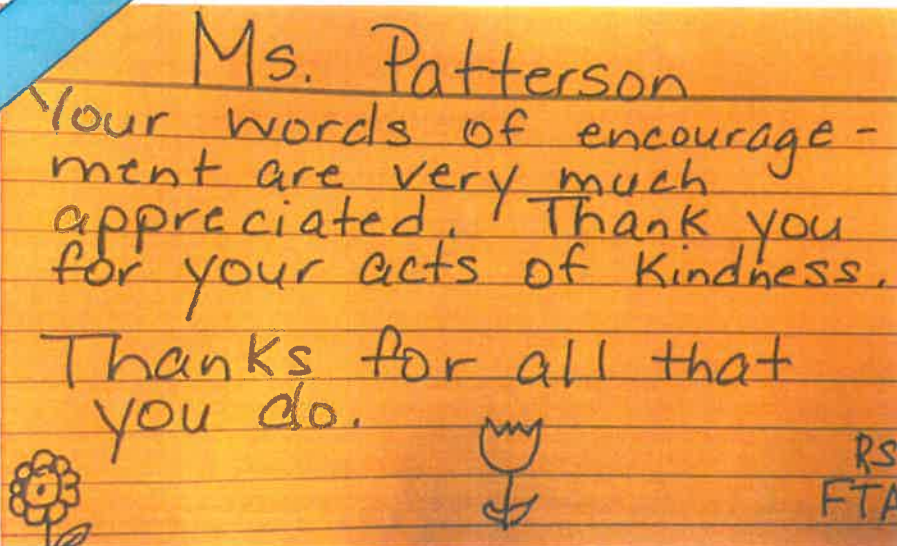 Ms. Patterson
Your words of encourage-
ment are very much
appreciated. Thank you
for your acts of Kindness.
Thanks for all that
you do.
RS
FTA